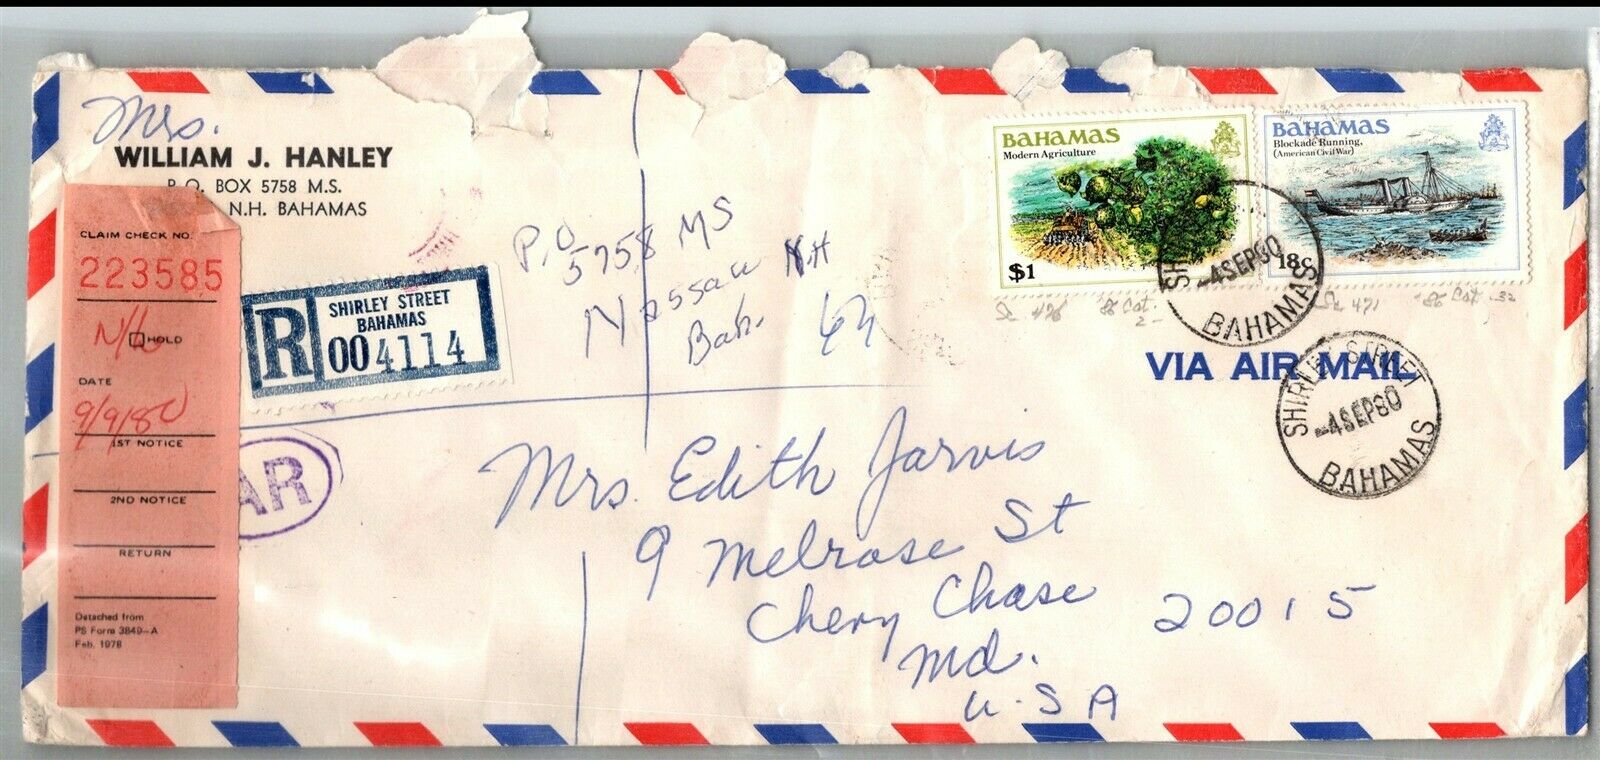 Mrs.
WILLIAM J. HANLEY
P.O. BOX 5758 M.S.
N.H. BAHAMAS
CLAIM CHECK NO.
223585
N/L
HOLD
DATE
9/9/80
1ST NOTICE
2ND NOTICE
RETURN
Detached from
PS Form 3849-A
Feb. 1978
R
SHIRLEY STREET
BAHAMAS
00 4114
AR
P.O
5758 MS
Nassau NH
Bah.
BAHAMAS
Modern Agriculture
$1
BAHAMAS
Blockade Running,
(American Civil War)
18c
SH
-4SEP80
BAHAMAS
Sc 476
Cat.
2-
Sc 471
Cat .32
VIA AIR MAIL
SHIRLEY STREET
-4SEP80
BAHAMAS
Mrs. Edith Jarvis
9 Melrose St
Chevy Chase
Md. 20015
U.S A